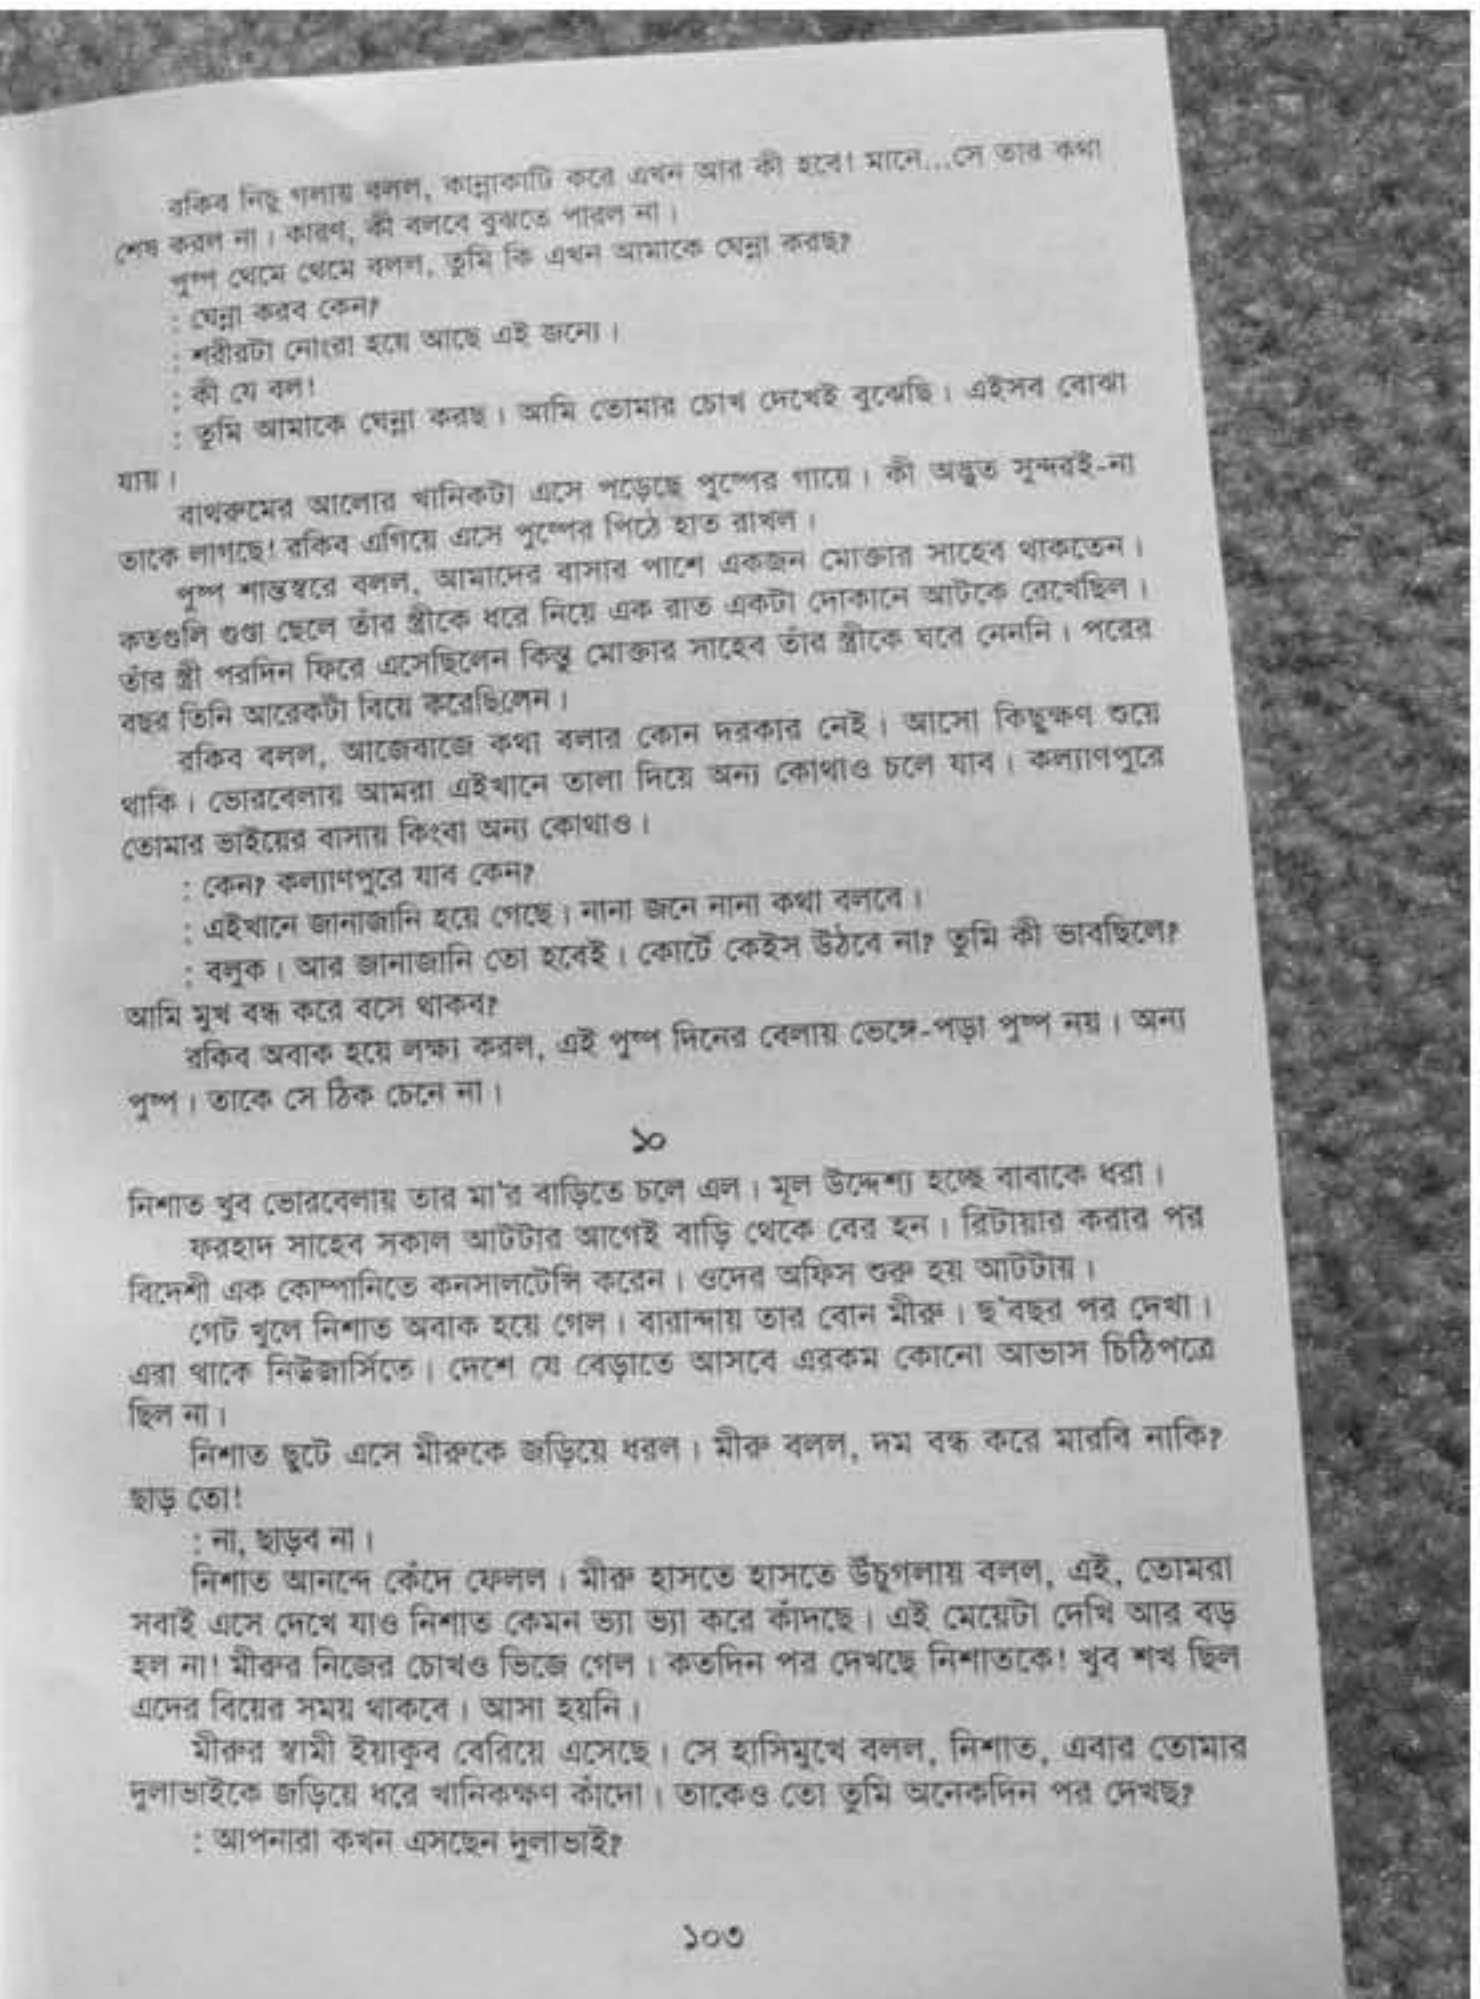 রকিব নিচু গলায় বলল, কান্নাকাটি করে এখন আর কী হবে! মানে...সে তার কথা
শেষ করল না। কারণ, কী বলবে বুঝতে পারল না।
পুষ্প থেমে থেমে বলল, তুমি কি এখন আমাকে ঘেন্না করছ?
: ঘেন্না করব কেন?
: শরীরটা নোংরা হয়ে আছে এই জন্যে।
: কী যে বল!
: তুমি আমাকে ঘেন্না করছ। আমি তোমার চোখ দেখেই বুঝেছি। এইসব বোঝা
যায়।
বাথরুমের আলোর খানিকটা এসে পড়েছে পুষ্পের গায়ে। কী অদ্ভুত সুন্দরই-না
তাকে লাগছে! রকিব এগিয়ে এসে পুষ্পের পিঠে হাত রাখল।
পুষ্প শান্তস্বরে বলল, আমাদের বাসার পাশে একজন মোক্তার সাহেব থাকতেন।
কতগুলি গুণ্ডা ছেলে তাঁর স্ত্রীকে ধরে নিয়ে এক রাত একটা দোকানে আটকে রেখেছিল।
তাঁর স্ত্রী পরদিন ফিরে এসেছিলেন কিন্তু মোক্তার সাহেব তাঁর স্ত্রীকে ঘরে নেননি। পরের
বছর তিনি আরেকটা বিয়ে করেছিলেন।
রকিব বলল, আজেবাজে কথা বলার কোন দরকার নেই। আসো কিছুক্ষণ শুয়ে
থাকি। ভোরবেলায় আমরা এইখানে তালা দিয়ে অন্য কোথাও চলে যাব। কল্যাণপুরে
তোমার ভাইয়ের বাসায় কিংবা অন্য কোথাও।
: কেন? কল্যাণপুরে যাব কেন?
: এইখানে জানাজানি হয়ে গেছে। নানা জনে নানা কথা বলবে।
: বলুক। আর জানাজানি তো হবেই। কোর্টে কেইস উঠবে না? তুমি কী ভাবছিলে?
আমি মুখ বন্ধ করে বসে থাকব?
রকিব অবাক হয়ে লক্ষ্য করল, এই পুষ্প দিনের বেলায় ভেঙ্গে-পড়া পুষ্প নয়। অন্য
পুষ্প। তাকে সে ঠিক চেনে না।
১০
নিশাত খুব ভোরবেলায় তার মা'র বাড়িতে চলে এল। মূল উদ্দেশ্য হচ্ছে বাবাকে ধরা।
ফরহাদ সাহেব সকাল আটটার আগেই বাড়ি থেকে বের হন। রিটায়ার করার পর
বিদেশী এক কোম্পানিতে কনসালটেন্সি করেন। ওদের অফিস শুরু হয় আটটায়।
গেট খুলে নিশাত অবাক হয়ে গেল। বারান্দায় তার বোন মীরু। ছ'বছর পর দেখা।
এরা থাকে নিউজার্সিতে। দেশে যে বেড়াতে আসবে এরকম কোনো আভাস চিঠিপত্রে
ছিল না।
নিশাত ছুটে এসে মীরুকে জড়িয়ে ধরল। মীরু বলল, দম বন্ধ করে মারবি নাকি?
ছাড় তো!
: না, ছাড়ব না।
নিশাত আনন্দে কেঁদে ফেলল। মীরু হাসতে হাসতে উঁচুগলায় বলল, এই, তোমরা
সবাই এসে দেখে যাও নিশাত কেমন ভ্যা ভ্যা করে কাঁদছে। এই মেয়েটা দেখি আর বড়
হল না! মীরুর নিজের চোখও ভিজে গেল। কতদিন পর দেখছে নিশাতকে! খুব শখ ছিল
এদের বিয়ের সময় থাকবে। আসা হয়নি।
মীরুর স্বামী ইয়াকুব বেরিয়ে এসেছে। সে হাসিমুখে বলল, নিশাত, এবার তোমার
দুলাভাইকে জড়িয়ে ধরে খানিকক্ষণ কাঁদো। তাকেও তো তুমি অনেকদিন পর দেখছ?
: আপনারা কখন এসছেন দুলাভাই?
১০৩